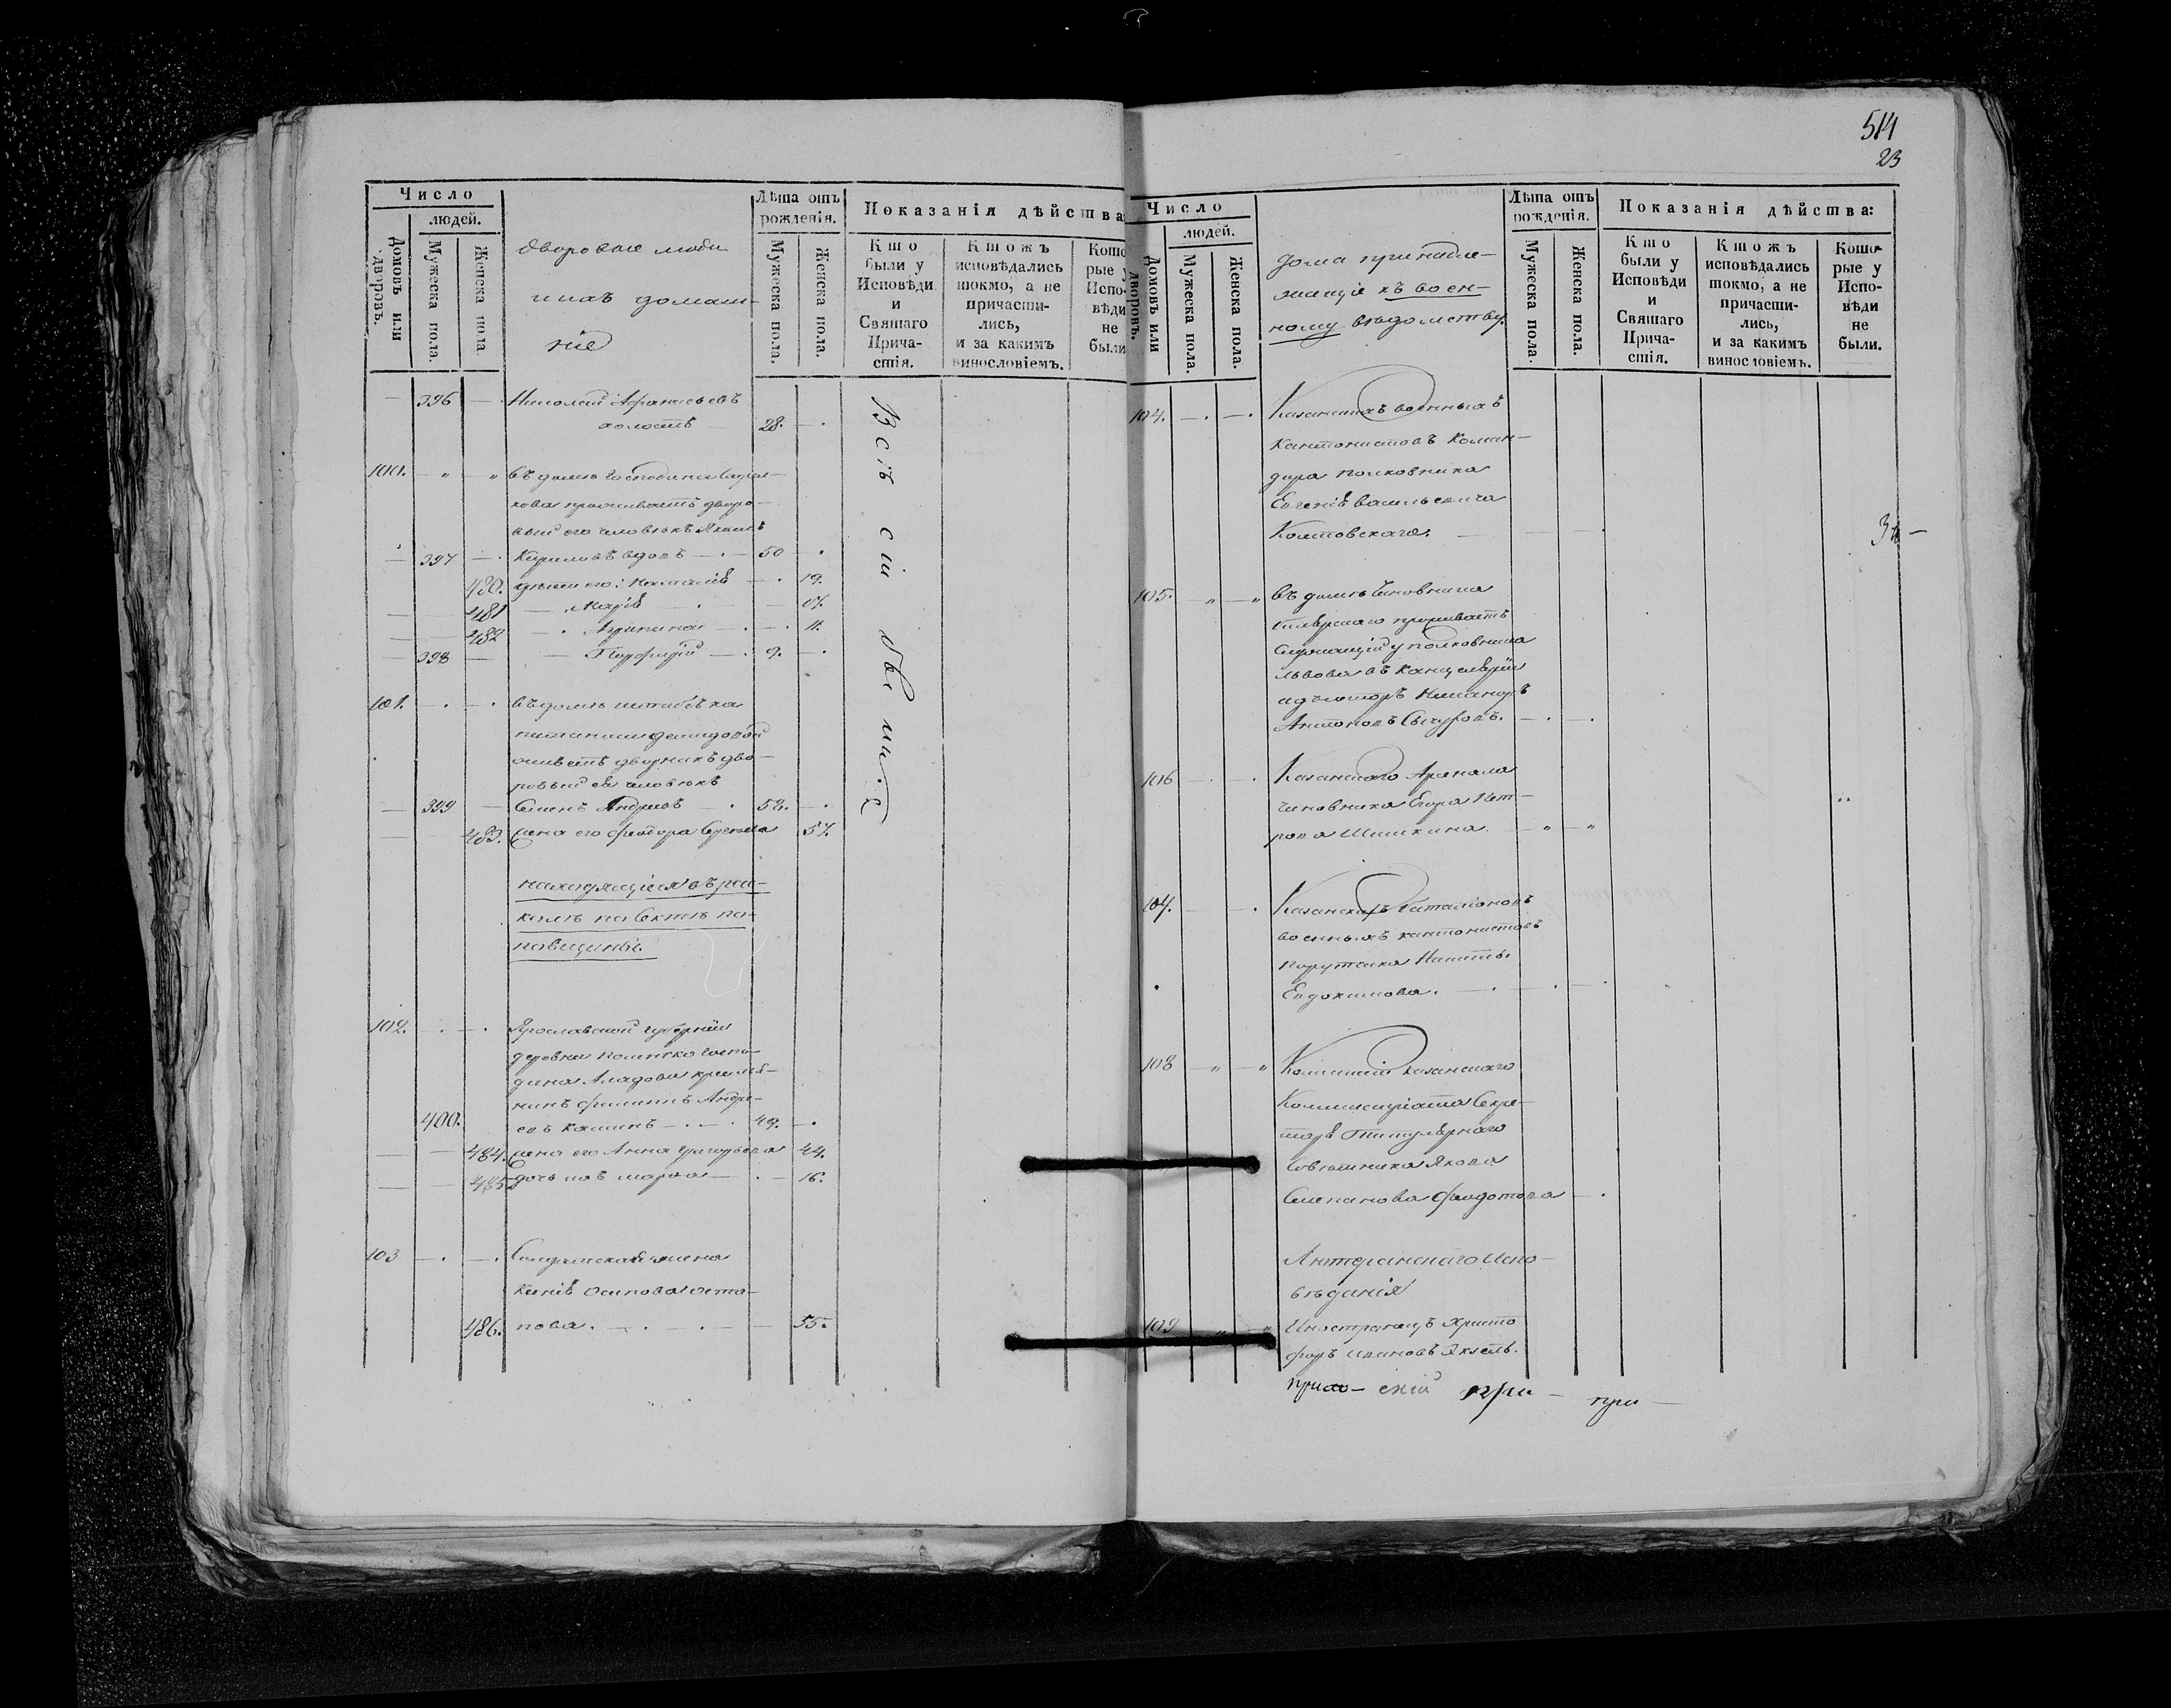 514
23
Число
людей.
Домовъ или дворовъ.
Мужеска пола.
Женска пола
дворовые люди
и ихъ домаш-
ніе
Лѣта отъ
рожденія.
Мужеска пола.
Женска пола.
Показанія дѣйства
Кто
были у
Исповѣди
и
Святаго
Прича-
стія.
Ктожъ
исповѣдались
токмо, а не
причасти-
лись,
и за какимъ
винословіемъ.
Кото
рые у
Испо-
вѣди
не
были
396 Николай Афанасьевъ
холостъ 28.
100. въ домѣ Господина
проживаетъ дворо-
вый его человѣкъ
397 Кириловъ вдовъ 50
480. дѣти его: Наталія 19.
481 Марія 17.
482 Агрипина 11.
398 Порфирій 9.
101. въ домѣ штабсъ ка
питанши Демидовой
живетъ дворникъ дво-
ровый ея человѣкъ
399 Семенъ Андреевъ 58.
483. жена его Феодора Сергеева 57.
находящіеся въ рас-
колѣ по сектѣ по-
повщины.
102. Ярославской губерніи
деревни госпо-
дина крестья-
нинъ Филиппъ Андре-
400. евъ 49.
484. жена его Анна Григорьева 44.
485 дочь ихъ Марѳа 16.
103 Солдатская жена
Ксенія Осипова Оста-
486. пова. 55.
Всѣ сіи
Число
людей.
Домовъ или дворовъ.
Мужеска пола.
Женска пола.
Дома принадле-
жащіе къ воен-
ному вѣдомству.
Лѣта отъ
рожденія.
Мужеска пола.
Женска пола.
Показанія дѣйства:
Кто
были у
Исповѣди
и
Святаго
Прича-
стія.
Ктожъ
исповѣдались
токмо, а не
причасти-
лись,
и за какимъ
винословіемъ.
Кото-
рые у
Испо-
вѣди
не
были.
104. Казанскихъ военныхъ
Кантонистовъ Коман-
дира полковника
Евгенія Васильевича
Колтовскаго.
105. въ домѣ Чиновника
проживаетъ
служащій у полковника
Львова въ Канцеляріи
Никаноръ
Антоновъ
106 Казанскаго Арсенала
чиновника Егора Пет-
рова Шишкина.
107. Казанскихъ Баталіоновъ
военныхъ кантонистовъ
порутчика Никиты
Евдокимова.
108 Коммисіи Казанскаго
Коммисаріата Секре-
таря Титулярнаго
Совѣтника Якова
Степанова Федотова
Лютеранскаго испо-
вѣданія
109 Иностранецъ Христо
форъ Ивановъ
при
при